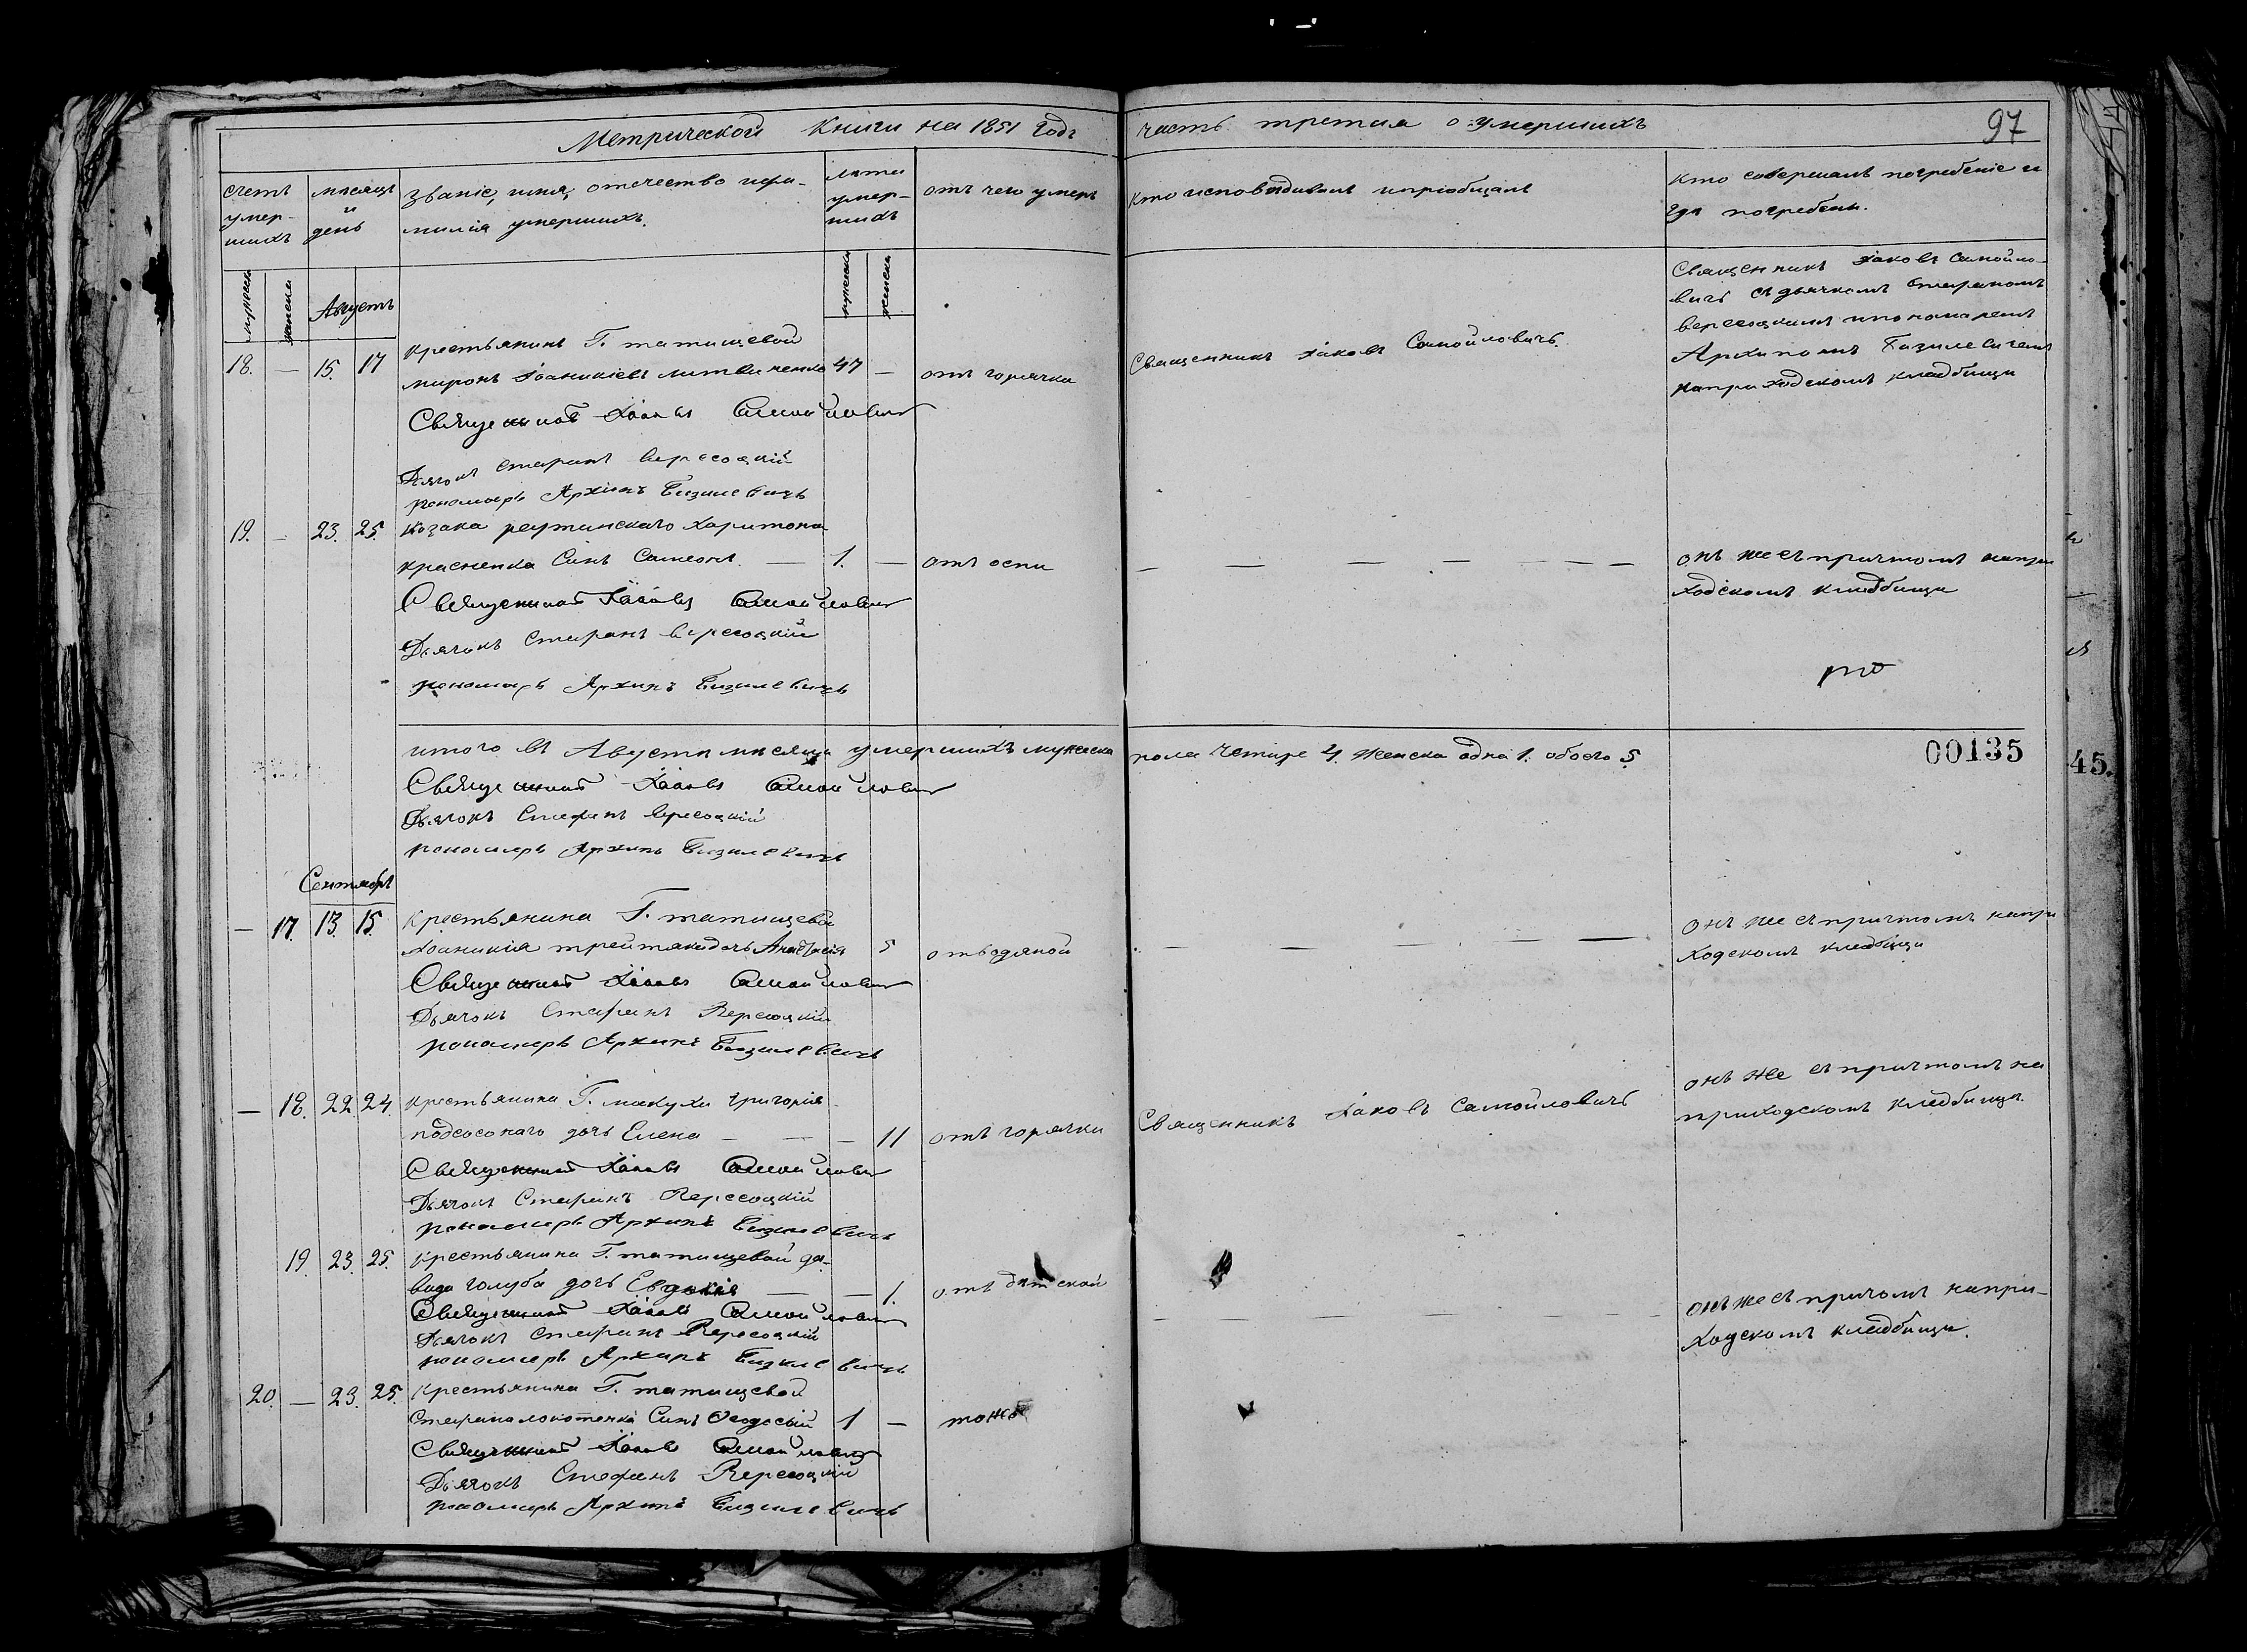 Метрической Книги на 1851 годъ часть третия о умершихъ
97
счетъ умер-шихъ
месяцъ и день
званіе, имя, отечество и фа-
милія умершихъ.
лѣта умер-шихъ
отъ чего умеръ
кто исповѣдывалъ и пріобщалъ
кто совершалъ погребеніе и
гдѣ погребены.
мужеска
женска
Августъ
мужеска
женска
18. — 15. 17 крестьянинъ Г. татищевой
миронъ Іоаникіевъ литвиненко 47 — отъ горячки
Священникъ Іаковъ Самойловичъ.
Священникъ Іаковъ Самойло-
вичъ съ дьячкомъ Стефаномъ
вересоцкимъ и пономаремъ
Архипомъ Базилевичемъ
наприходскомъ кладбищи
Священникъ Іаковъ Самойловичъ
Дьячокъ Стефанъ вересоцкій
пономарь Архипъ Базилевичъ
19. — 23. 25. козака реутинскаго Харитона
красненка Синъ Самеонъ — 1. — отъ оспи — — — — — — —
онъ же съ причтомъ напри
ходскомъ кладбищи
Священникъ Іаковъ Самойловичъ
Дьячокъ Стефанъ вересоцкій
пономарь Архипъ Базилевичъ
итого въ Августѣ мѣсяцѣ умершихъ мужеска пола четире 4. женска одна 1. обоего 5.
00135
45.
Священникъ Іаковъ Самойловичъ
Дьячокъ Стефанъ вересоцкій
пономарь Архипъ Базилевичъ
Сентябрь
— 17. 13. 15. крестьянина Г. татищевой
Іоаникія третяка дочь Анастасія 5 отъ водяной — — — — —
онъ же съ причтомъ напри
ходскомъ кладбищи
Священникъ Іаковъ Самойловичъ
Дьячокъ Стефанъ Вересоцкій
пономарь Архипъ Базилевичъ
— 18. 22. 24. крестьянина Г. макухи григорія
подсосонаго дочь Елена — — — 11 отъ горячки
Священникъ Іаковъ Самойловичъ
онъ же съ причтомъ на
приходскомъ кладбищи.
Священникъ Іаковъ Самойловичъ
Дьячокъ Стефанъ Вересоцкій
пономарь Архипъ Базилевичъ
19. 23. 25. крестьянина Г. татищевой да-
вида голуба дочь Евдокія — — 1. отъ дѣтской — — — — — —
онъ же съ причомъ напри-
ходскомъ кладбищи.
Священникъ Іаковъ Самойловичъ
Дьячокъ Стефанъ Вересоцкій
пономарь Архипъ Базилевичъ
20. — 23. 25. крестьянина Г. татищевой
Стефана Синъ Ѳеодосій 1 — тожъ
Священникъ Іаковъ Самойловичъ
Дьячокъ Стефанъ Вересоцкій
пономарь Архипъ Базилевичъ